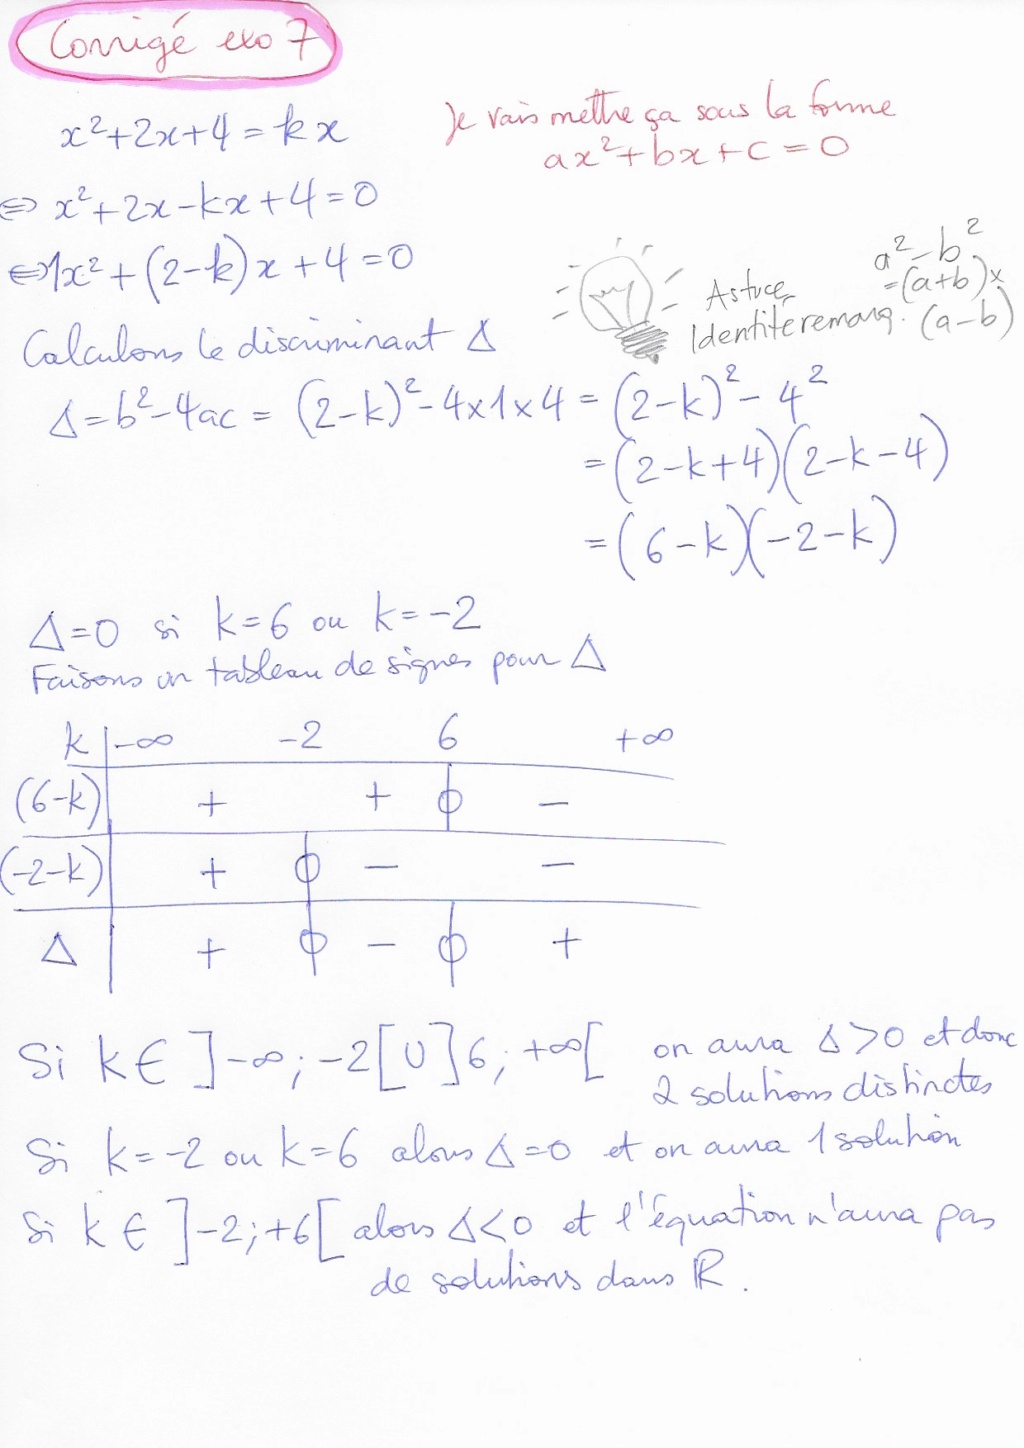 Corrigé exo 7
x²+2x+4 = kx
Je vais mettre ça sous la forme
ax²+bx+c = 0
⇔ x²+2x-kx+4=0
⇔ 1x²+(2-k)x+4=0
Astuce
Identité remarq.
a²-b²
=(a+b)×
(a-b)
Calculons le discriminant Δ
Δ=b²-4ac = (2-k)²-4×1×4 = (2-k)²-4²
=(2-k+4)(2-k-4)
=(6-k)(-2-k)
Δ=0 si k=6 ou k=-2
Faisons un tableau de signes pour Δ
k -∞ -2 6 +∞
(6-k) + + 0 -
(-2-k) + 0 - -
Δ + 0 - 0 +
Si k∈]-∞;-2[U]6;+∞[ on aura Δ>0 et donc
2 solutions distinctes
Si k=-2 ou k=6 alors Δ=0 et on aura 1 solution
Si k∈]-2;+6[ alors Δ<0 et l'équation n'aura pas
de solutions dans ℝ.